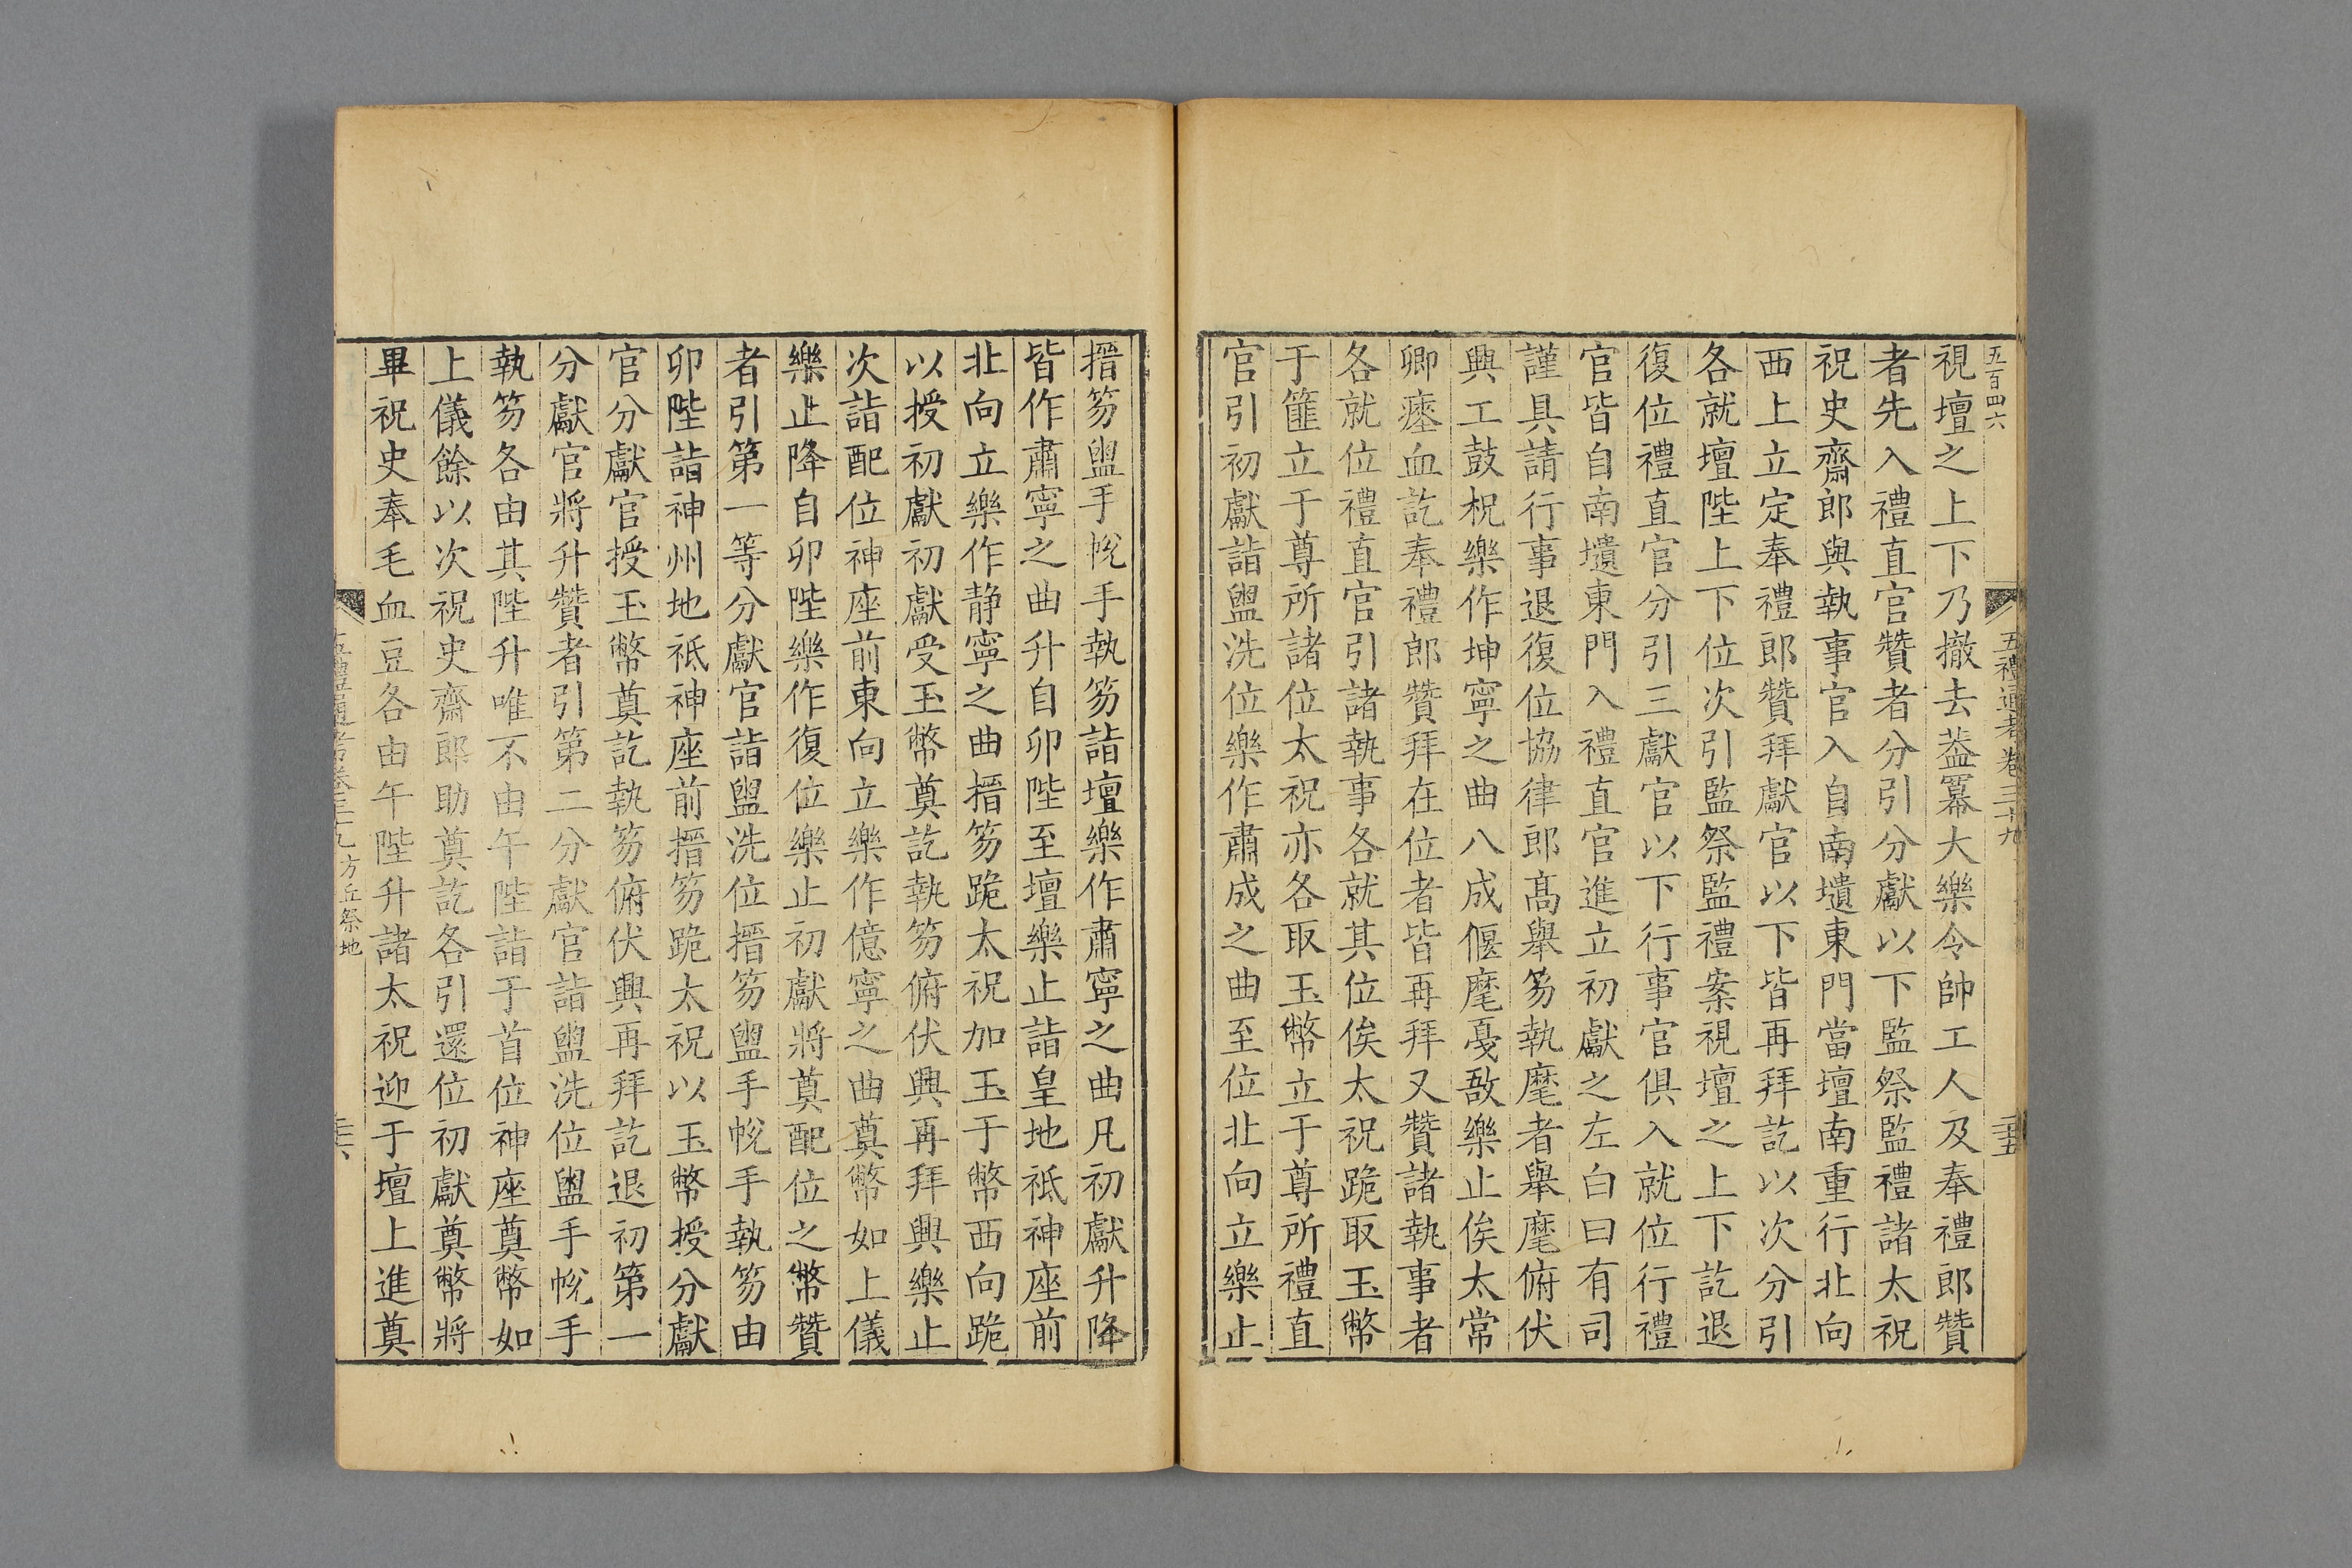 五百四六
五禮通考卷三十九
三十五
視壇之上下乃撤去葢冪大樂令帥工人及奉禮郎贊
者先入禮直官贊者分引分獻以下監祭監禮諸太祝
祝史齋郎與執事官入自南壝東門當壇南重行北向
西上立定奉禮郎贊拜獻官以下皆再拜訖以次分引
各就壇陛上下位次引監祭監禮案視壇之上下訖退
復位禮直官分引三獻官以下行事官俱入就位行禮
官皆自南壝東門入禮直官進立初獻之左白曰有司
謹具請行事退復位協律郎髙舉笏執麾者舉麾俯伏
興工鼓柷樂作坤寧之曲八成偃麾戞敔樂止俟太常
卿瘞血訖奉禮郎贊拜在位者皆再拜又贊諸執事者
各就位禮直官引諸執事各就其位俟太祝跪取玉幣
于篚立于尊所諸位太祝亦各取玉幣立于尊所禮直
官引初獻詣盥洗位樂作肅成之曲至位北向立樂止
搢笏盥手帨手執笏詣壇樂作肅寧之曲凡初獻升降
皆作肅寧之曲升自卯陛至壇樂止詣皇地祗神座前
北向立樂作静寧之曲搢笏跪太祝加玉于幣西向跪
以授初獻初獻受玉幣奠訖執笏俯伏興再拜興樂止
次詣配位神座前東向立樂作億寧之曲奠幣如上儀
樂止降自卯陛樂作復位樂止初獻將奠配位之幣贊
者引第一等分獻官詣盥洗位搢笏盥手帨手執笏由
卯陛詣神州地祗神座前搢笏跪太祝以玉幣授分獻
官分獻官授玉幣奠訖執笏俯伏興再拜訖退初第一
分獻官將升贊者引第二分獻官詣盥洗位盥手帨手
執笏各由其陛升唯不由午陛詣于首位神座奠幣如
上儀餘以次祝史齋郎助奠訖各引還位初獻奠幣將
畢祝史奉毛血豆各由午陛升諸太祝迎于壇上進奠
五禮通考卷三十九 方丘祭地
三十六